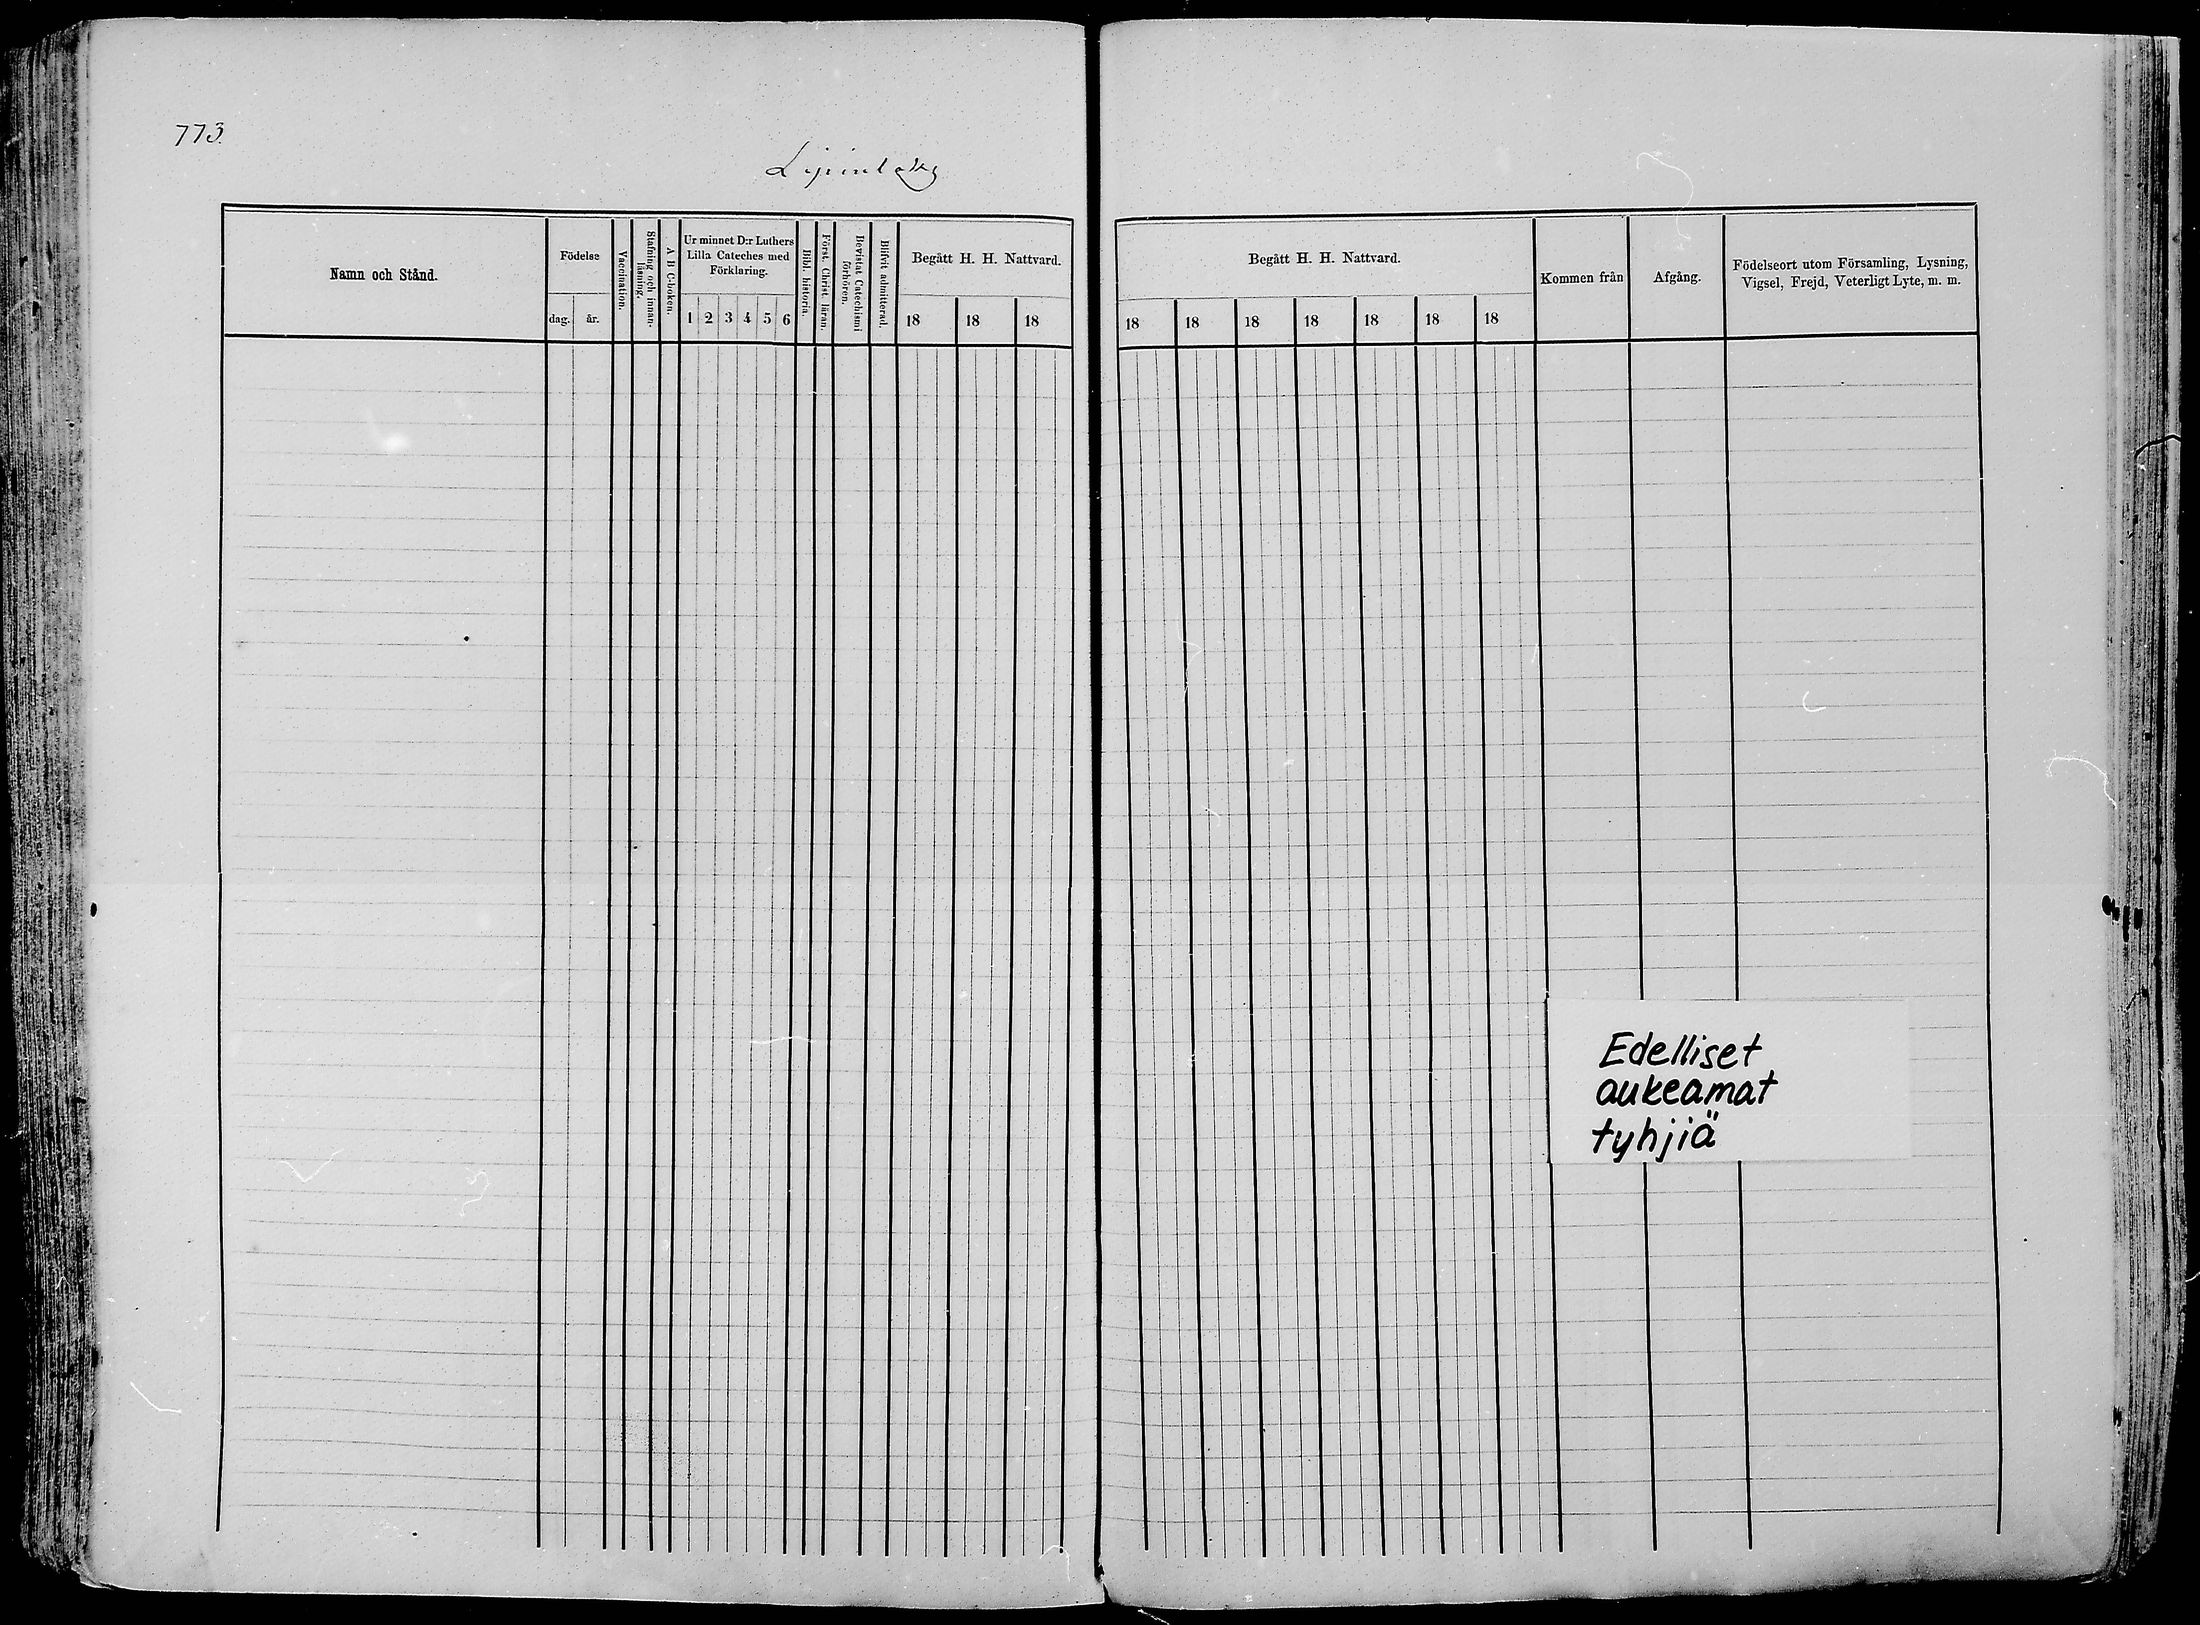 773.
Namn och Stånd.
Födelse
dag.
år.
Vaccination.
Stafning och innan-
läsning.
A B C-boken.
Ur minnet D:r Luthers
Lilla Cateches med
Förklaring.
1 2 3 4 5 6
Bibl. historia.
Först. Christ. läran.
Bevistat Catechismi
förhören.
Blifvit admitterad.
Begått H. H. Nattvard.
18 18 18
Begått H. H. Nattvard.
18 18 18 18 18 18 18
Kommen från
Afgång.
Födelseort utom Församling, Lysning,
Vigsel, Frejd, Veterligt Lyte, m. m.
Edelliset
aukeamat
tyhjiä